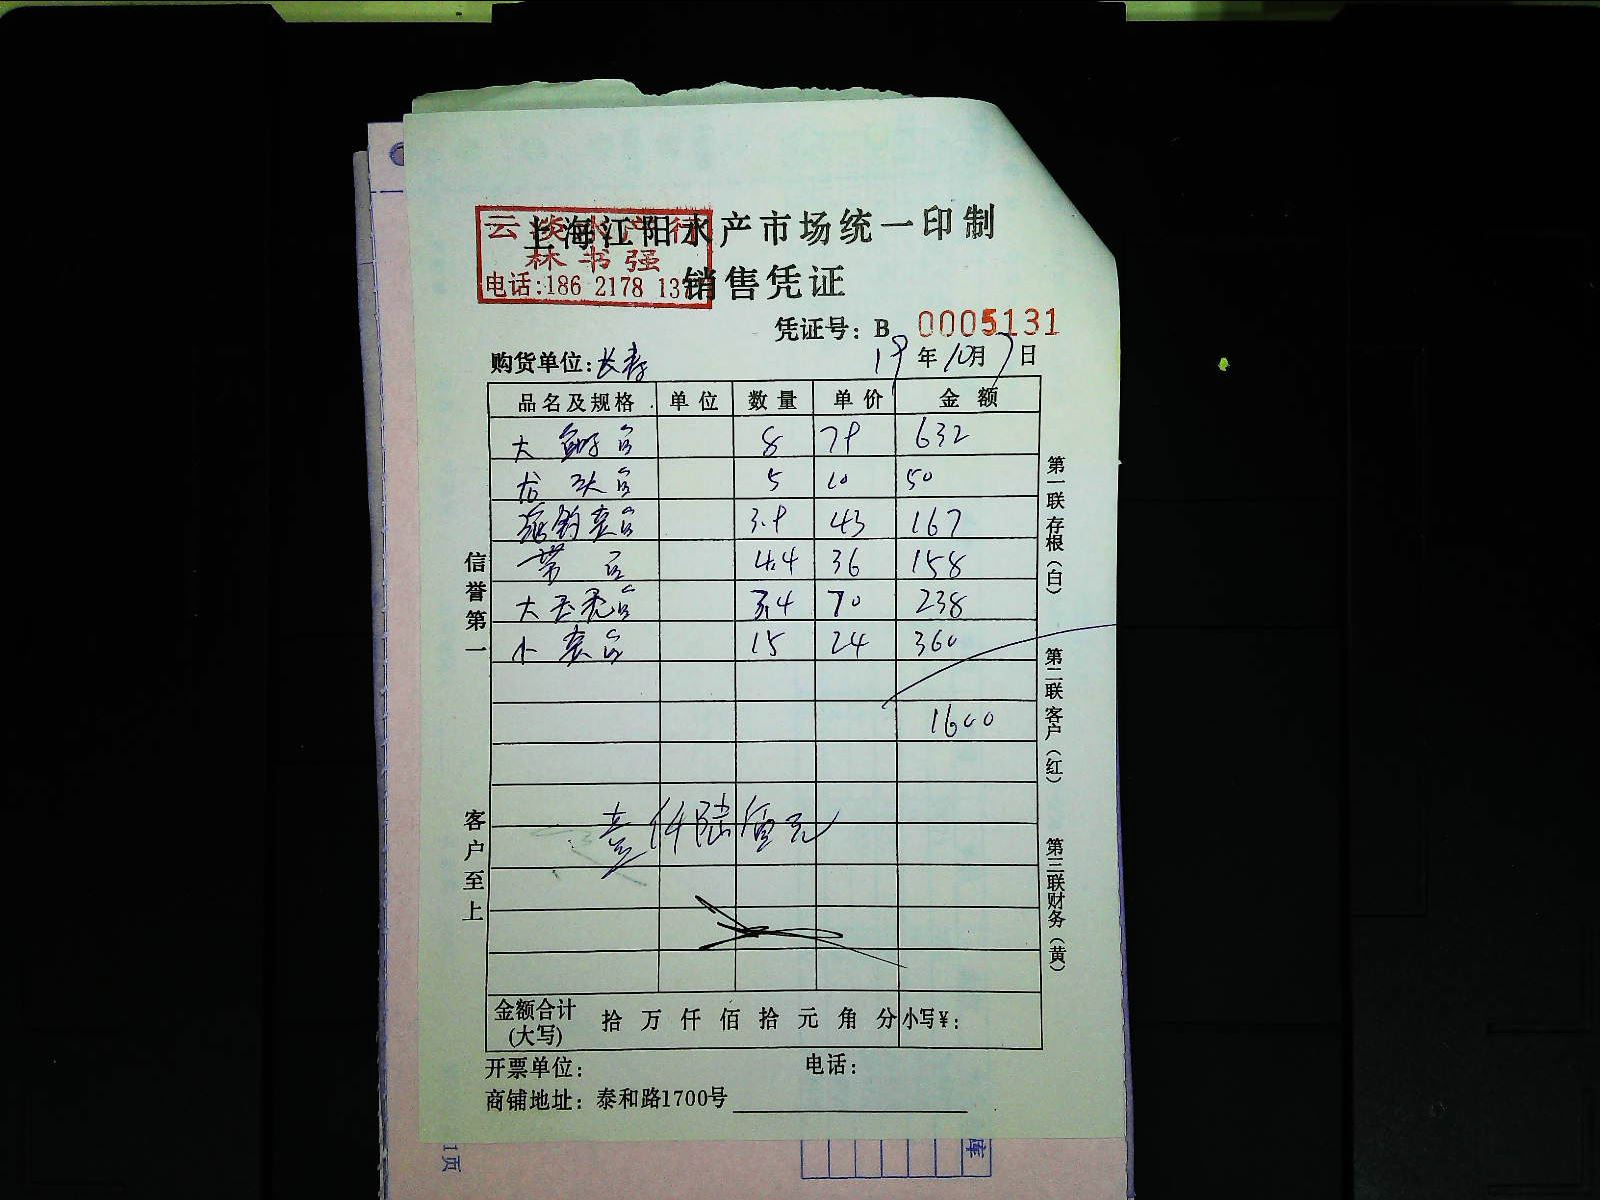 上海江阳水产市场统一印制
云淡水产行
林书强
电话:186 2178 13
销售凭证
凭证号: B 0005131
购货单位:长寿 19年10月7日
品名及规格 单位 数量 单价 金额
大 8 79 632
龙头鱼 5 10 50
3.9 43 167
带鱼 4.4 36 158
大 3.4 70 238
小黄鱼 15 24 360
1600
壹仟陆佰元
金额合计(大写) 拾 万 仟 佰 拾 元 角 分 小写¥:
开票单位: 电话:
商铺地址: 泰和路1700号
信誉第一
客户至上
第一联存根(白)
第二联客户(红)
第三联财务(黄)
1页
库